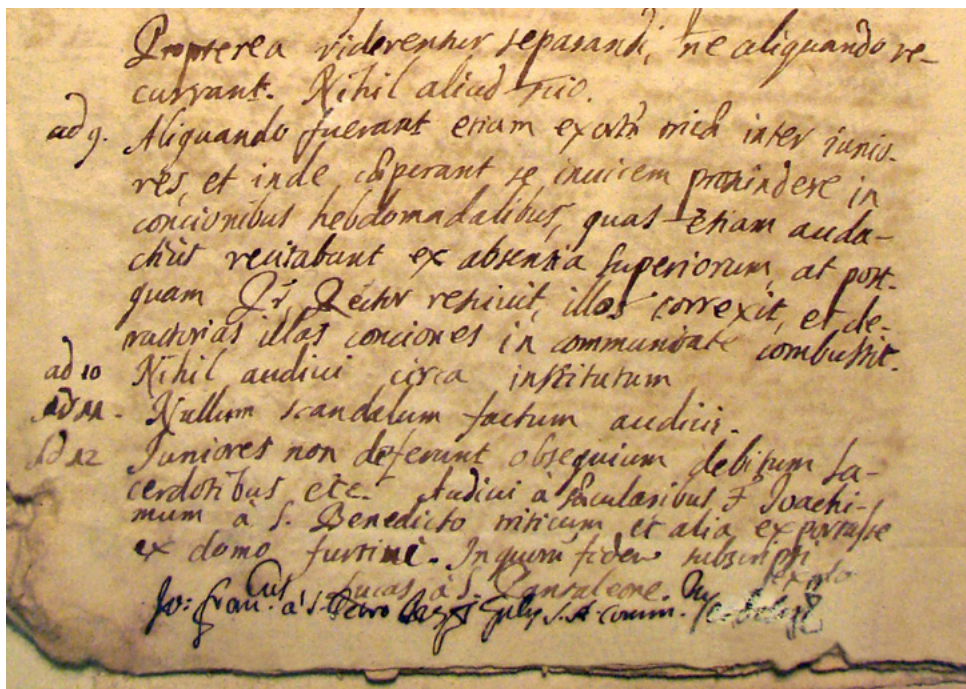 Propterea viderentur separandi, ne aliquando re-
currant. Nihil aliud scio.
ad 9. Aliquando fuerant etiam inter iunio-
res, et inde cœperant se inuicem proscindere in
concionibus hebdomadalibus, quas etiam auda-
cius recitabant ex absentia superiorum, at post-
quam Pr. Rector resciuit, illos correxit, et de-
tractorias illas conciones in communitate combussit.
ad 10 Nihil audiui circa institutum
ad 11. Nullum scandalum factum audiui.
ad 12 Juniores non deferunt obsequium debitum sa-
cerdotibus etc. Audiui à sæcularibus F. Joachi-
mum à S. Benedicto triticum et alia exportasse
ex domo furtiui. In quorum fidem subscripsi
Lucas à S. Pantaleone.
Jo: Fran.cus à S. Petro